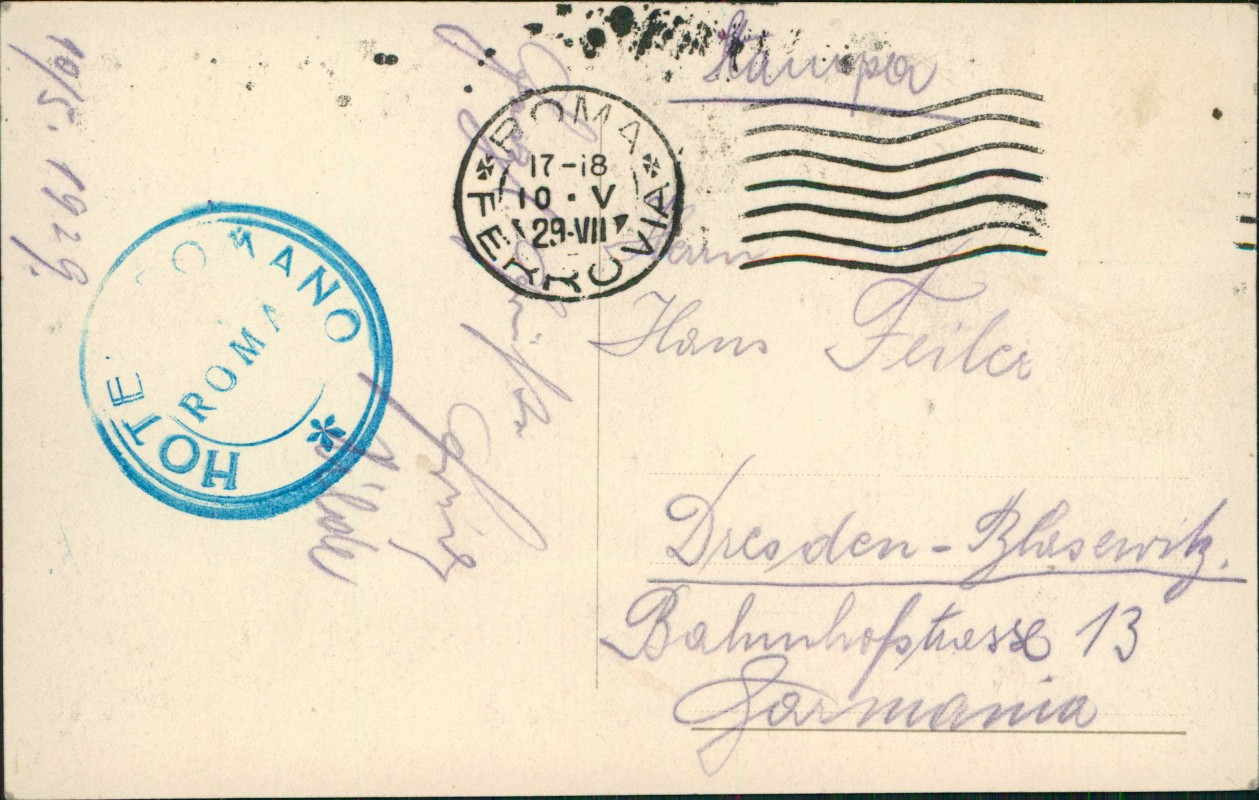 10/5. 1929.
HOTE ROMANO
ROMA
ROMA
17-18
10 · V
29·VII
FERROVIA
Stampa
Herrn
Hans Feiler
Dresden-Blasewitz.
Bahnhofstrasse 13
Germania